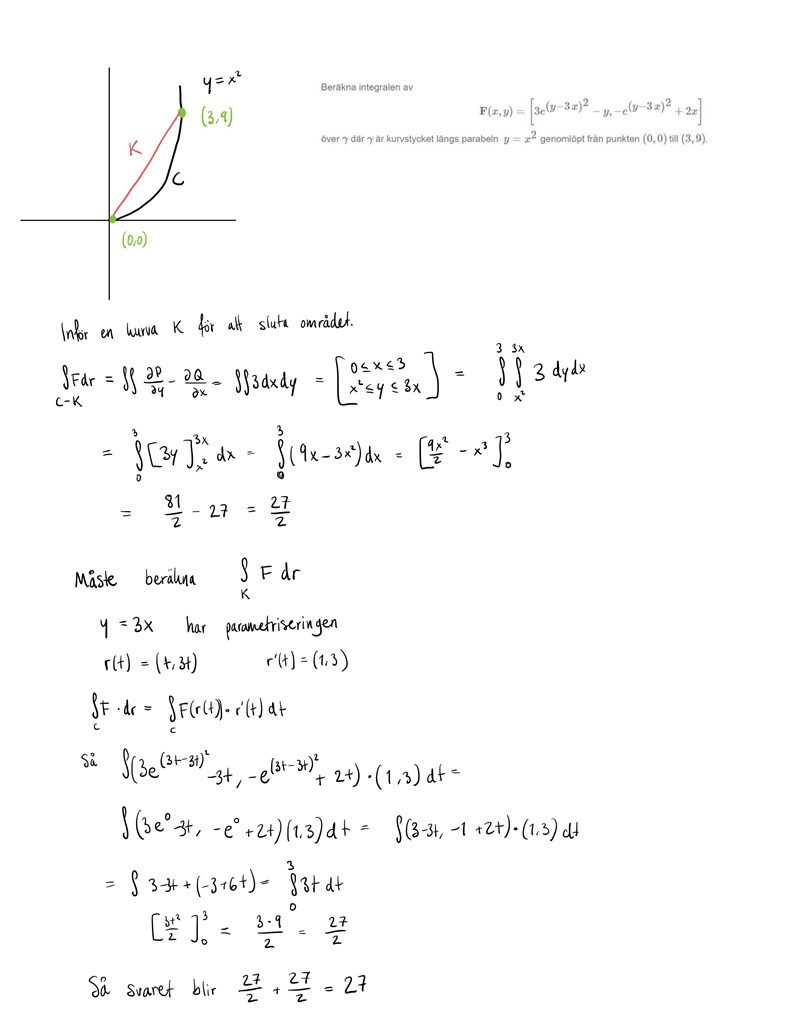 y = x²
(3,9)
K
C
(0,0)
Beräkna integralen av
F(x, y) = [3e^{(y−3x)²} − y, −e^{(y−3x)²} + 2x]
över γ där γ är kurvstycket längs parabeln y = x² genomlöpt från punkten (0, 0) till (3, 9).
Inför en kurva K för att sluta området.
∫_{C-K} Fdr = ∬ ∂P/∂y - ∂Q/∂x = ∬3dxdy = [0≤x≤3 x²≤y≤3x] = ∫_0^3 ∫_{x²}^{3x} 3 dydx
= ∫_0^3 [3y]_{x²}^{3x} dx = ∫_0^3 (9x - 3x²)dx = [9x²/2 - x³]_0^3
= 81/2 - 27 = 27/2
Måste beräkna ∫_K F dr
y = 3x har parametriseringen
r(t) = (t, 3t) r'(t) = (1,3)
∫_C F · dr = ∫_C F(r(t)) · r'(t) dt
Så ∫(3e^{(3t-3t)²} -3t, -e^{(3t-3t)²} + 2t) · (1,3) dt =
∫(3e⁰-3t, -e⁰+2t)(1,3)dt = ∫(3-3t, -1+2t)·(1,3) dt
= ∫ 3-3t + (-3+6t) = ∫_0^3 3t dt
[3t²/2]_0^3 = 3·9/2 = 27/2
Så svaret blir 27/2 + 27/2 = 27